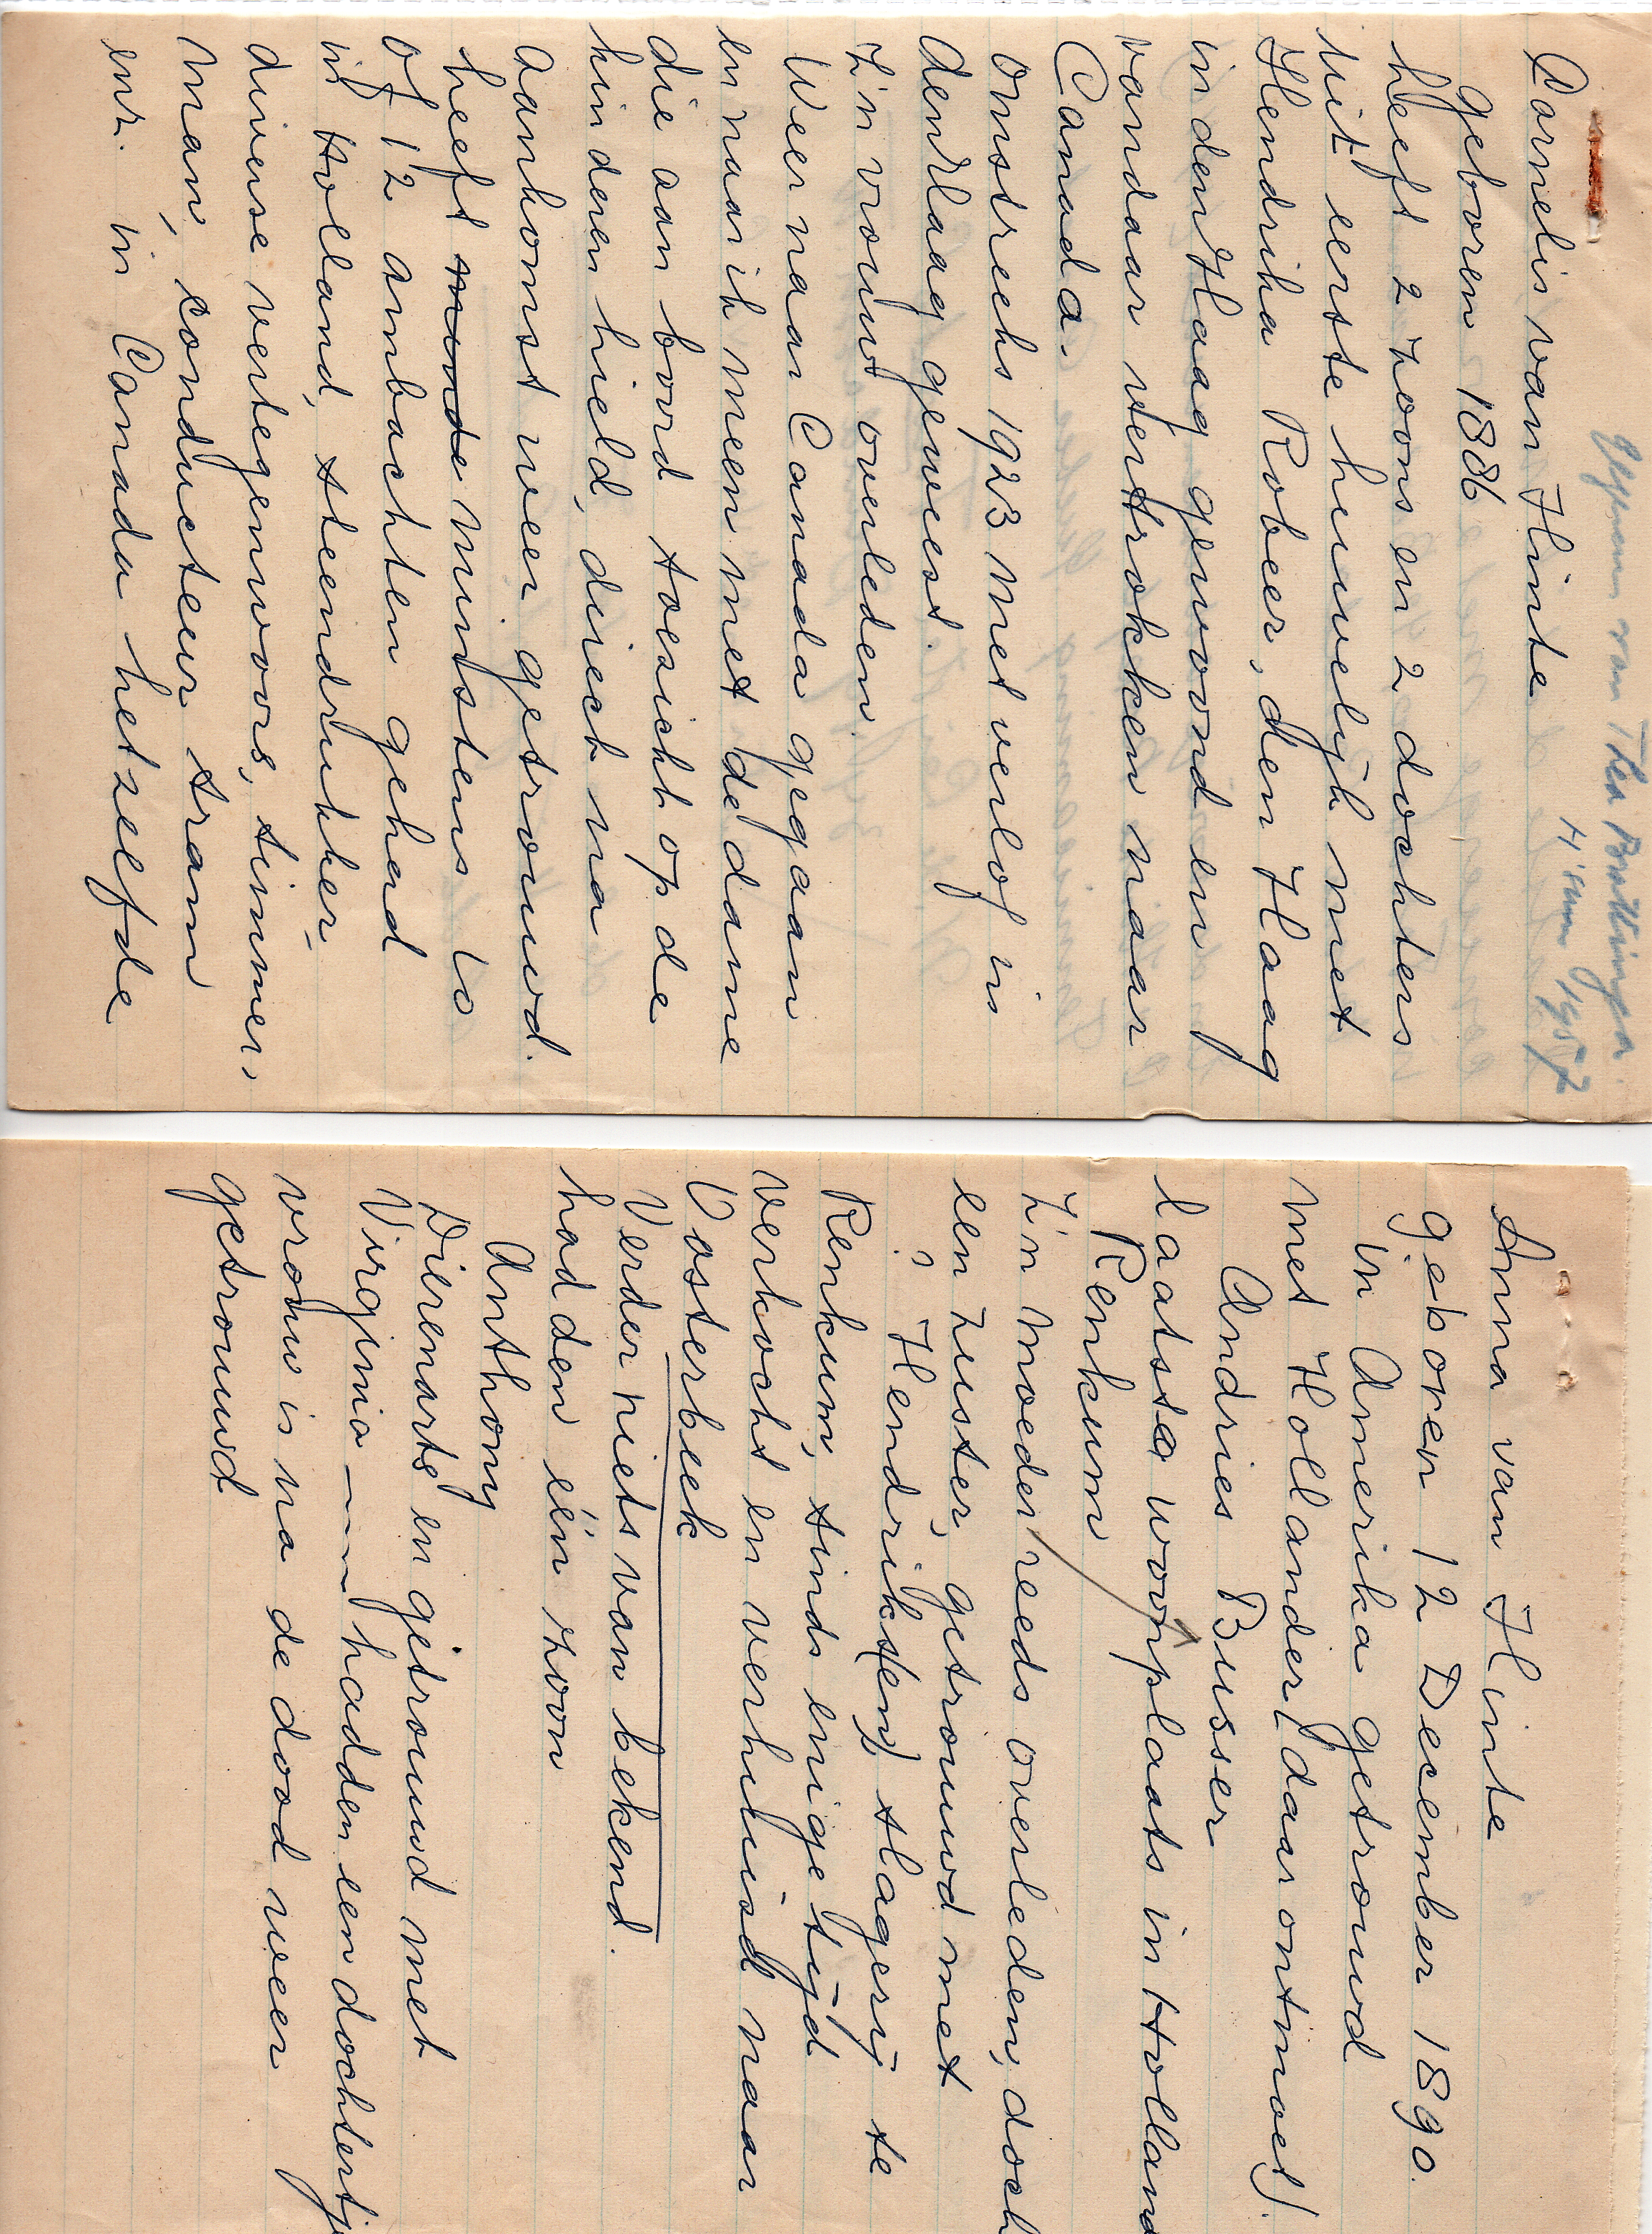 Gegevens van Thea Brattinga
H'sum 1957
Cornelis van Hinte
geboren 1886
heeft 2 zoons en 2 dochters
uit eerste huwelijk met
Hendrika Robeer, den Haag
in den Haag gewoond en
vandaar vertrokken naar
Canada.
Omstreeks 1923 met verlof in
den Haag geweest.
Z'n vrouw overleden.
Weer naar Canada gegaan
en naar ik meen met de dame
die aan boord toezicht op de
kinderen hield, direct na
aankomst weer getrouwd.
heeft minde minstens 10
of 12 ambachten gehad
in Holland, steendrukker,
diverse vertegenwoors, timmer,
man, conducteur tram
enz. in Canada hetzelfde
Anna van Hinte
geboren 12 December 1890.
In Amerika getrouwd
met Hollander (daar ontmoet)
Andries Busser
laatste woonplaats in Holland
Renkum
Z'n moeder reeds overleden, doch
een zuster, getrouwd met
? Hendriks(en) slagerij te
Renkum, sinds enige tijd
verkocht en verhuisd naar
Oosterbeek
Verder niets van bekend.
hadden één zoon
Anthony
Dierenarts en getrouwd met
Virginia --- hadden een dochtertje
vrouw is na de dood weer
getrouwd